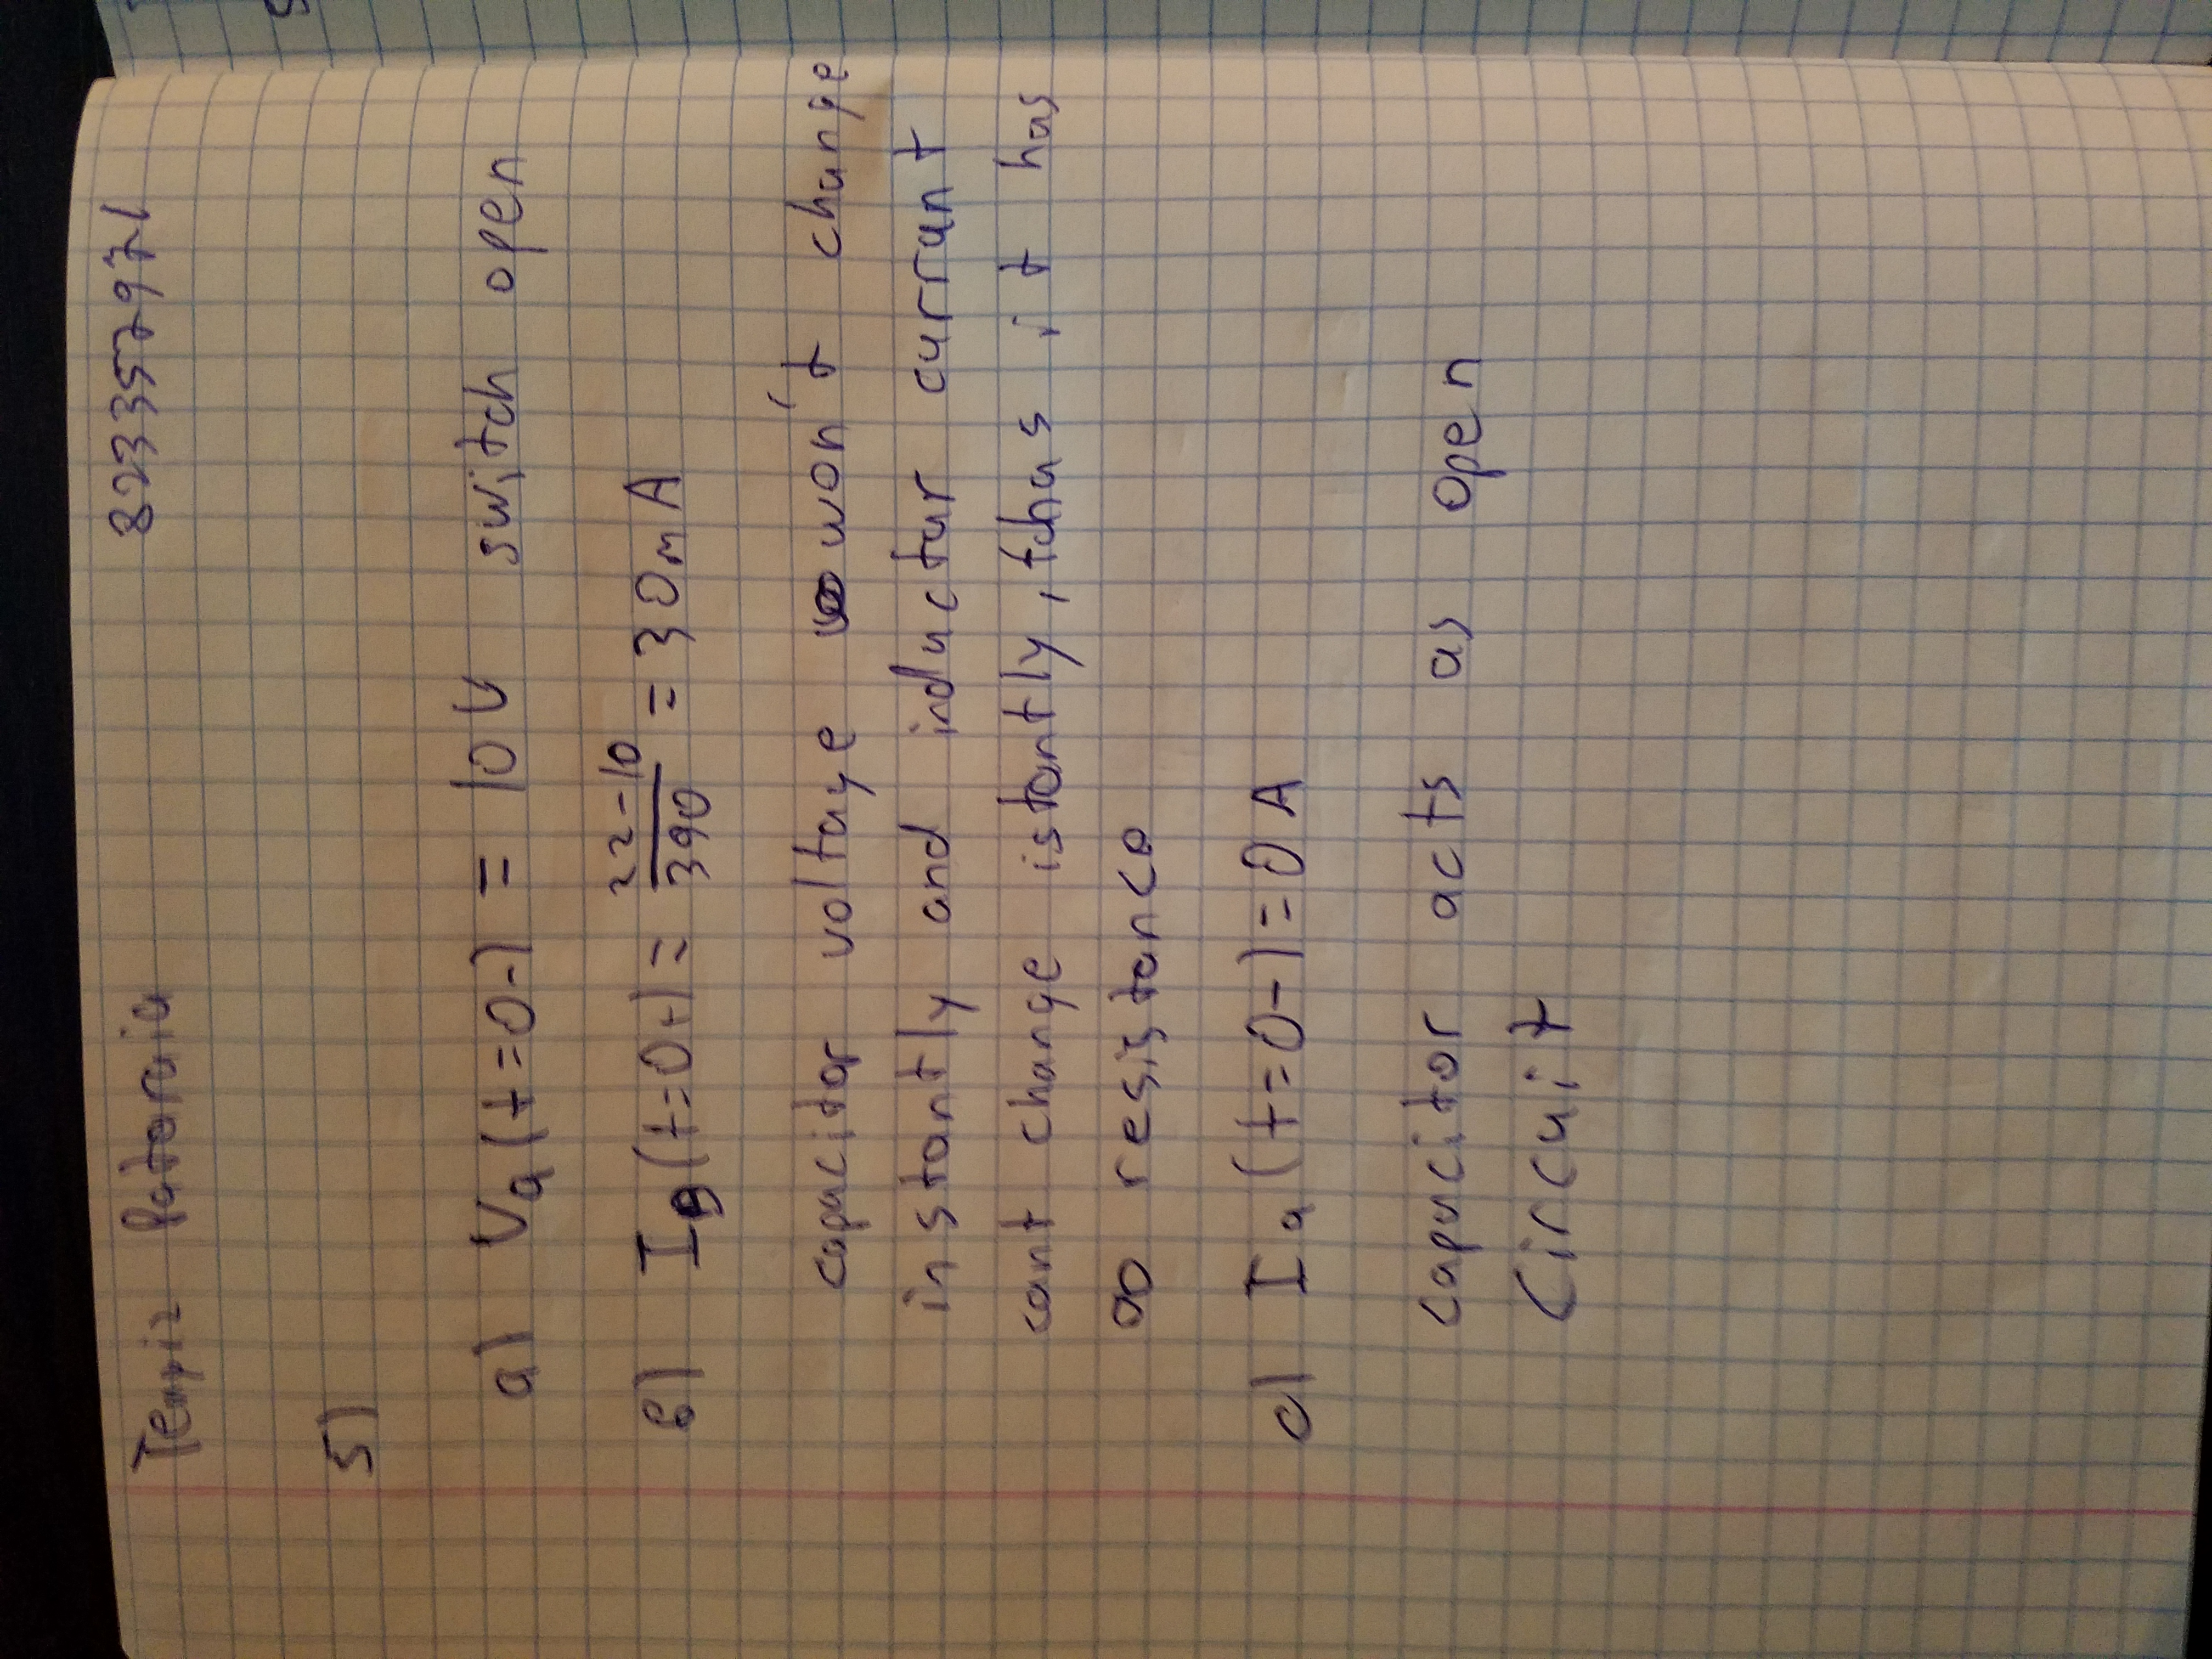 Temriz Pataraia 823357971
5)
a) Va(t=0-) = 10V switch open
b) Ia(t=0+) = 22-10/390 = 30mA
capacitor voltage won't change
instantly and inductur currunt
cant change istantly, thus it has
∞ resistance
c) Ia(t=0-)=0A
capacitor acts as open
Circuit